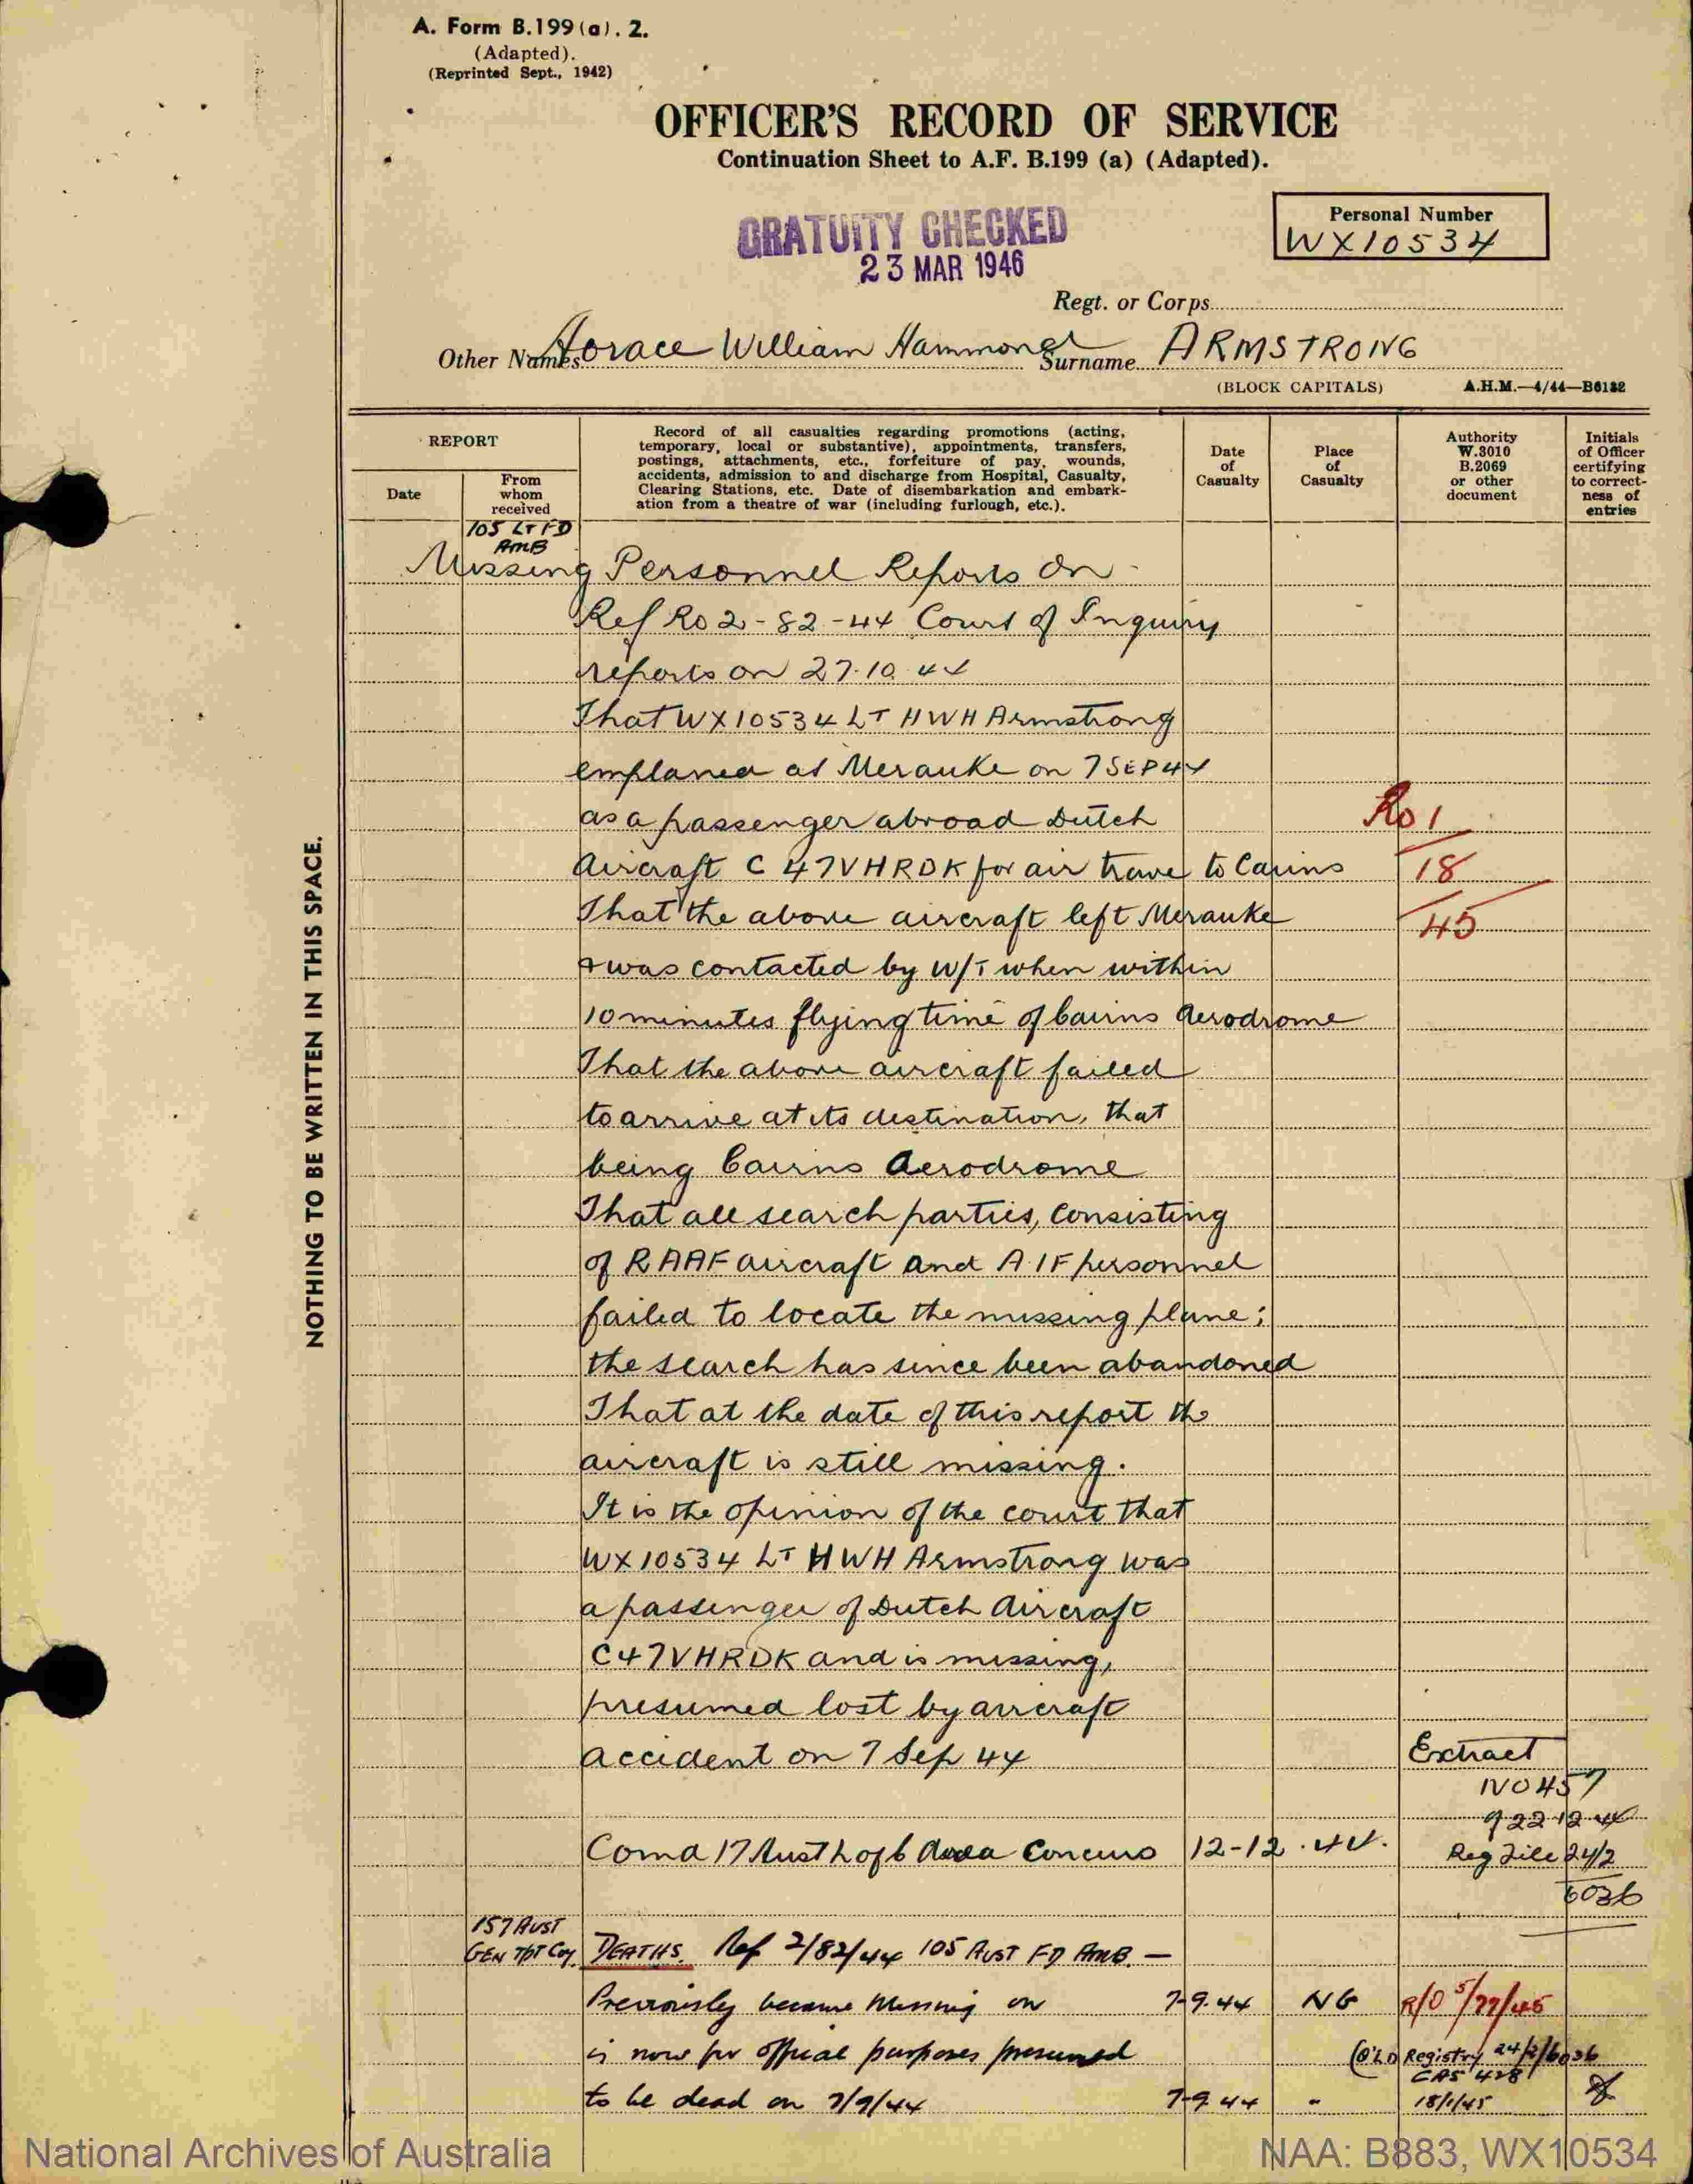 A. Form B.199 (a). 2.
(Adapted).
(Reprinted Sept., 1942)
OFFICER'S RECORD OF SERVICE
Continuation Sheet to A.F. B.199 (a) (Adapted).
GRATUITY CHECKED
23 MAR 1946
Personal Number
WX10534
Regt. or Corps
Other Names Horace William Hammond Surname ARMSTRONG
(BLOCK CAPITALS) A.H.M.—4/44—B6132
REPORT
Date
From whom received
Record of all casualties regarding promotions (acting,
temporary, local or substantive), appointments, transfers,
postings, attachments, etc., forfeiture of pay, wounds,
accidents, admission to and discharge from Hospital, Casualty,
Clearing Stations, etc. Date of disembarkation and embark-
ation from a theatre of war (including furlough, etc.).
Date of Casualty
Place of Casualty
Authority W.3010 B.2069 or other document
Initials of Officer certifying to correct-ness of entries
NOTHING TO BE WRITTEN IN THIS SPACE.
105 LT FD
AMB
Missing Personnel Reports On
Ref Ro 2-82-44 Court of Inquiry
reports on 27.10.44
That WX10534 LT HWH Armstrong
emplaned at Merauke on 7 SEP 44
as a passenger abroad Dutch Ro 1
Aircraft C 47VHRDK for air trave to Cairns 18
That the above aircraft left Merauke 45
& was contacted by W/T when within
10 minutes flying time of Cairns Aerodrome
That the above aircraft failed
to arrive at its destination, that
being Cairns Aerodrome
That all search parties, consisting
of RAAF aircraft and A.I.F personnel
failed to locate the missing plane;
the search has since been abandoned
That at the date of this report the
aircraft is still missing.
It is the opinion of the court that
WX10534 LT HWH Armstrong was
a passenger of Dutch Aircraft
C47VHRDK and is missing,
presumed lost by aircraft
accident on 7 Sep 44 Extract
NO 457
of 22-12-44
Comd 17 Aust L of C Area Concurs 12-12-44. Reg File 24/2
6036
157 AUST
GEN TPT Coy. DEATHS. Ref 2/82/44 105 AUST FD AMB. —
Previously became Missing on 7-9-44 NG R/O 5/77/45
is now for official purposes presumed (Q'LD Registry 24/2/6036
CAS 428
to be dead on 7/9/44 7-9 44 " 18/1/45
National Archives of Australia NAA: B883, WX10534